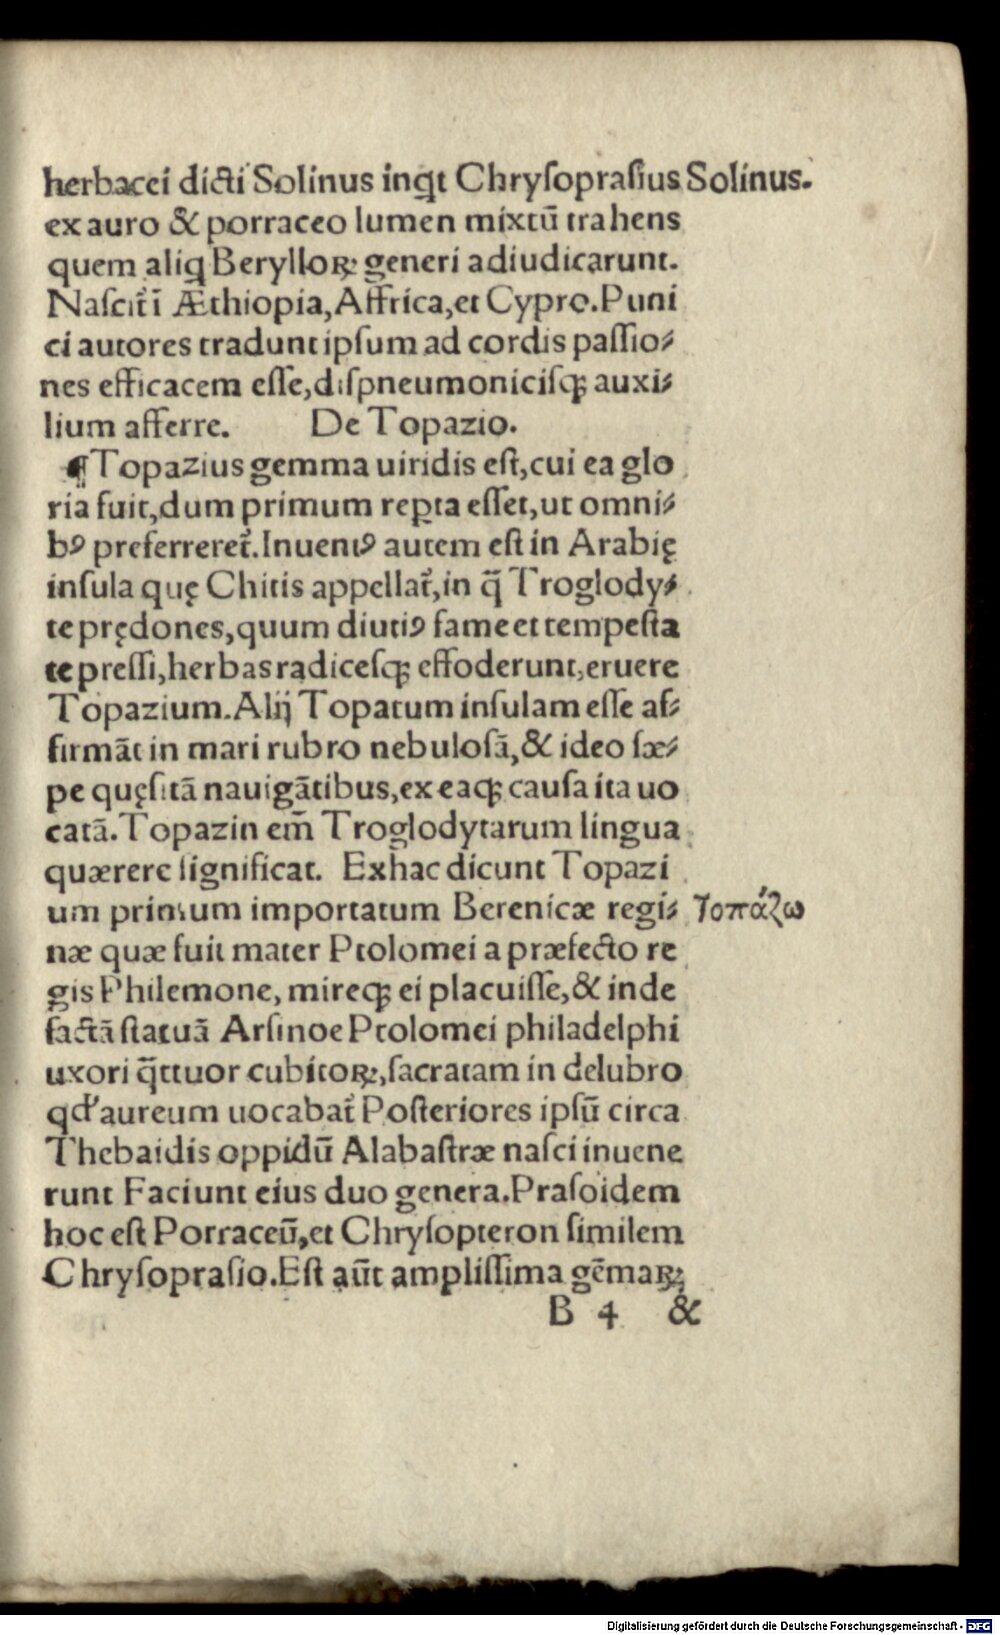 herbacei dicti Solinus inꝗt Chryſopraſius Solinus.
ex auro & porraceo lumen mixtū trahens
quem aliꝗ Berylloꝝ generi adiudicarunt.
Naſcit᷑ ī Æthiopia, Affrica, et Cypro. Puni
ci autores tradunt ipſum ad cordis paſſio⸗
nes efficacem eſſe, diſpneumoniciſqꝫ auxi⸗
lium afferre. De Topazio.
¶Topazius gemma uiridis eſt, cui ea glo
ria fuit, dum primum reꝑta eſſet, ut omni⸗
bꝰ preferreret᷑. Inuentꝰ autem eſt in Arabię
inſula quę Chitis appellat᷑, in q̄ Troglody⸗
te prędones, quum diutiꝰ fame et tempeſta
te preſſi, herbas radiceſqꝫ effoderunt, eruere
Topazium. Alij Topatum inſulam eſſe af⸗
firmāt in mari rubro nebuloſā, & ideo ſæ⸗
pe quęſitā nauigātibus, ex eaqꝫ cauſa ita uo
catā. Topazin em̄ Troglodytarum lingua
quærere ſignificat. Ex hac dicunt Topazi
um primum importatum Berenicæ regi⸗ Τοπάζω
næ quæ fuit mater Ptolomei a præfecto re
gis Philemone, mireqꝫ ei placuiſſe, & inde
factā ſtatuā Arſinoe Ptolomei philadelphi
uxori q̄ttuor cubitoꝝ, ſacratam in delubro
qd' aureum uocabat᷑ Poſteriores ipſū circa
Thebaidis oppidū Alabaſtræ naſci inuene
runt Faciunt eius duo genera. Praſoidem
hoc eſt Porraceū, et Chryſopteron ſimilem
Chryſopraſio. Eſt aūt ampliſſima gēmaꝝ
B 4 &
Digitalisierung gefördert durch die Deutsche Forschungsgemeinschaft - DFG